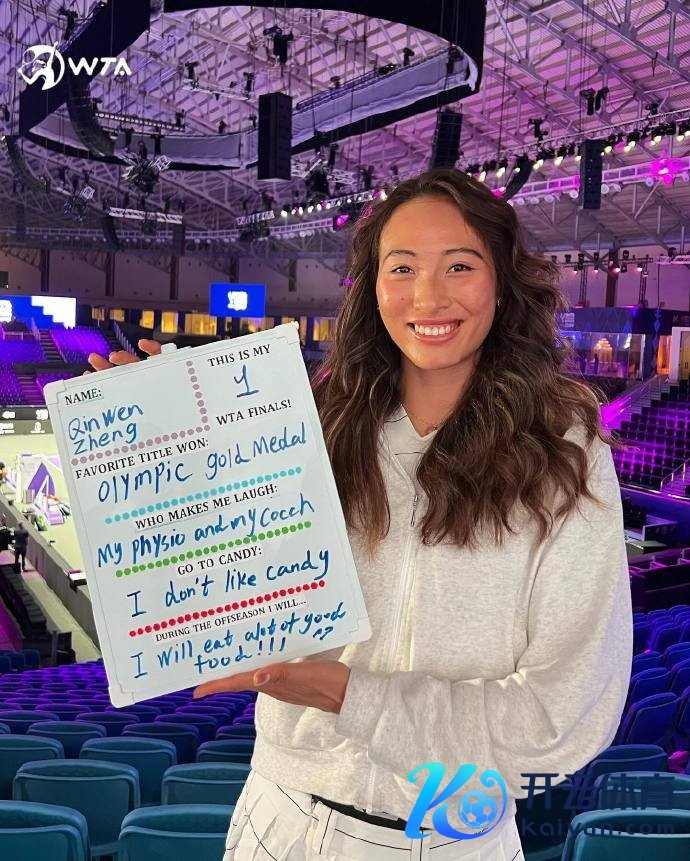 WTA
NAME:
THIS IS MY
QinWen
1
Zheng
WTA FINALS!
FAVORITE TITLE WON:
OLYMPIC gold Medal
WHO MAKES ME LAUGH:
My physio and my coach
GO TO CANDY:
I don't like candy
DURING THE OFFSEASON I WILL...
I will eat alot of good
food!!!
开海体育
kaiyun.com